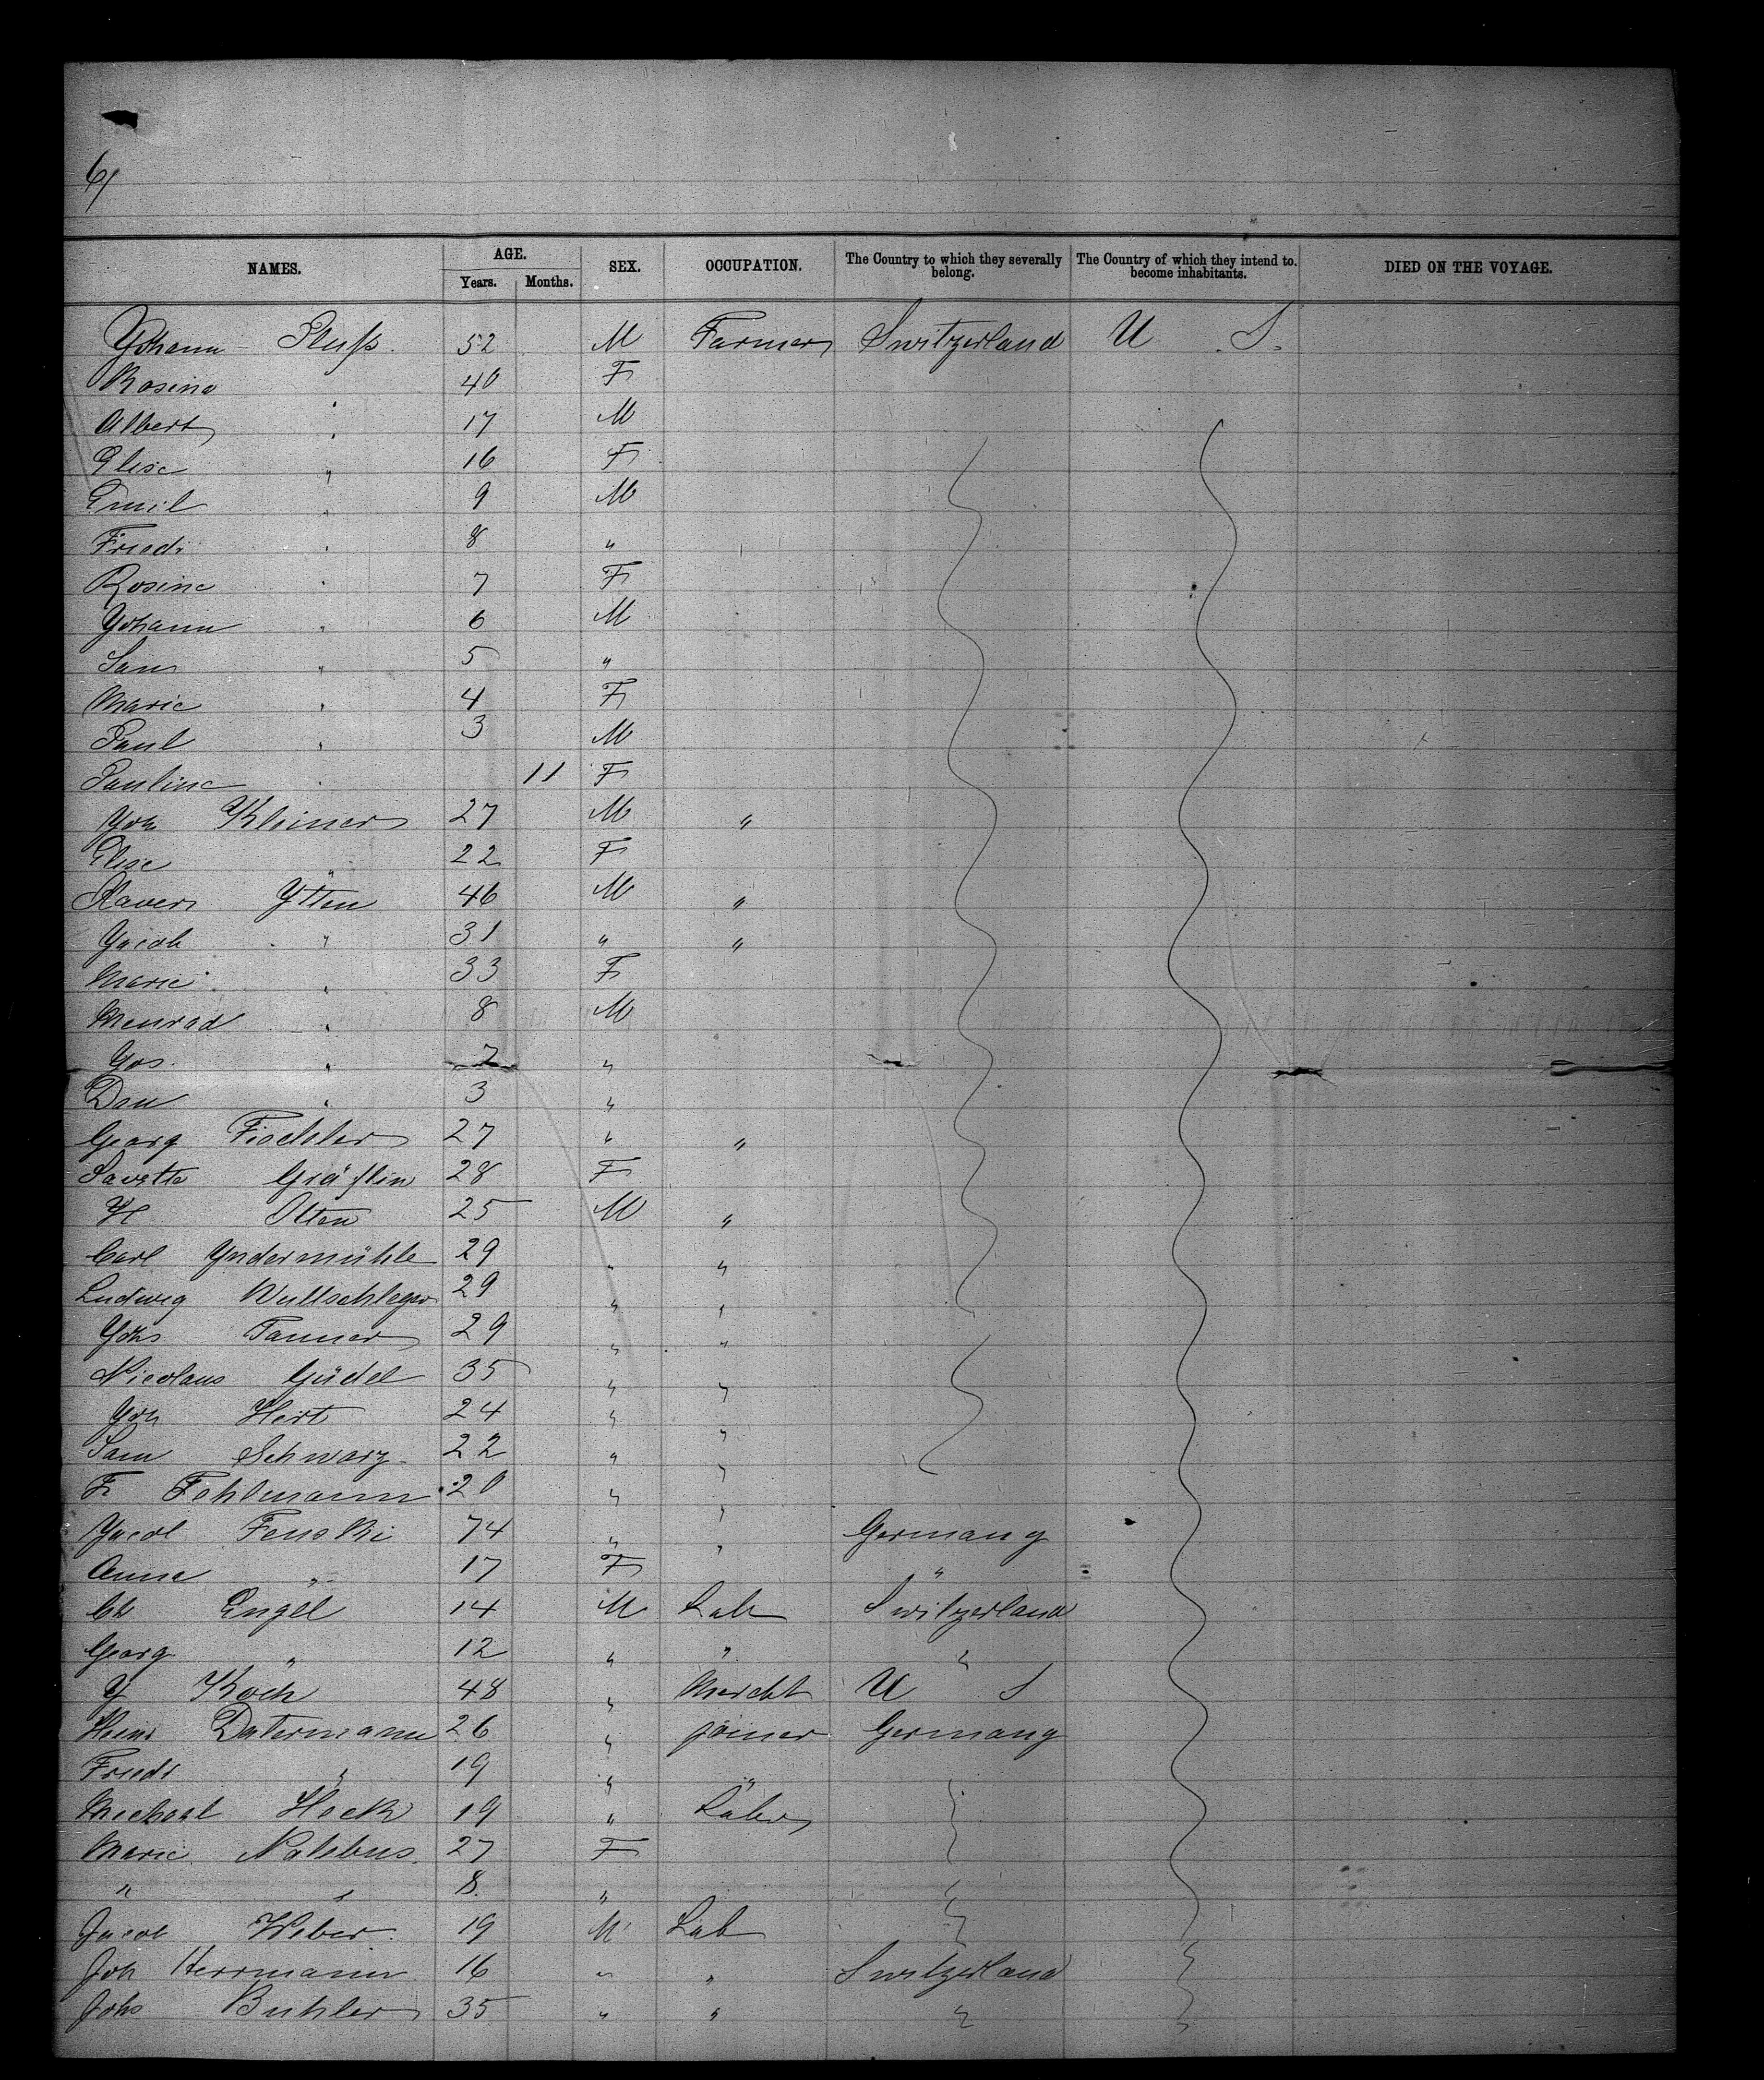 6/
NAMES. AGE. SEX. OCCUPATION. The Country to which they severally belong. The Country of which they intend to become inhabitants. DIED ON THE VOYAGE.
Years. Months.
Johann Pluß 52 M Farmer Switzerland U S.
Rosina 40 F
Albert " 17 M
Elise " 16 F
Emil " 9 M
Friedr " 8 "
Rosine " 7 F
Johann " 6 M
Sam " 5 "
Marie " 4 F
Paul " 3 M
Pauline " 11 F
Joh Kleiner 27 M "
Elise " 22 F
Xaver Itten 46 M "
Jacob " 31 " "
Marie " 33 F
Menrad " 8 M
Jos. " 7 "
Dan " 3 "
Georg Fischler 27 " "
Savette Gräflin 28 F
H Otten 25 M "
Carl Indermühle 29 " "
Ludwig Wullschleger 29 " "
Johs Tanner 29 " "
Nicolaus Güdel 35 " "
Joh Hert 24 " "
Sam Schwarz 22 " "
Fr Fehlmann 20 " "
Jacob Fenski 74 " " Germany
Anna " 17 F "
Ch Engel 14 M Lab Switzerland
Georg " 12 " " "
J Koch 48 " Mercht U S
Heinr Datermann 26 " joiner Germany
Friedr " 19 " "
Michael Heck 19 " Labr
Marie 27 F
" " 8 "
Jacob Weber 19 M Lab
Joh Herrmann 16 " " Switzerland
Johs Buhler 35 " " "